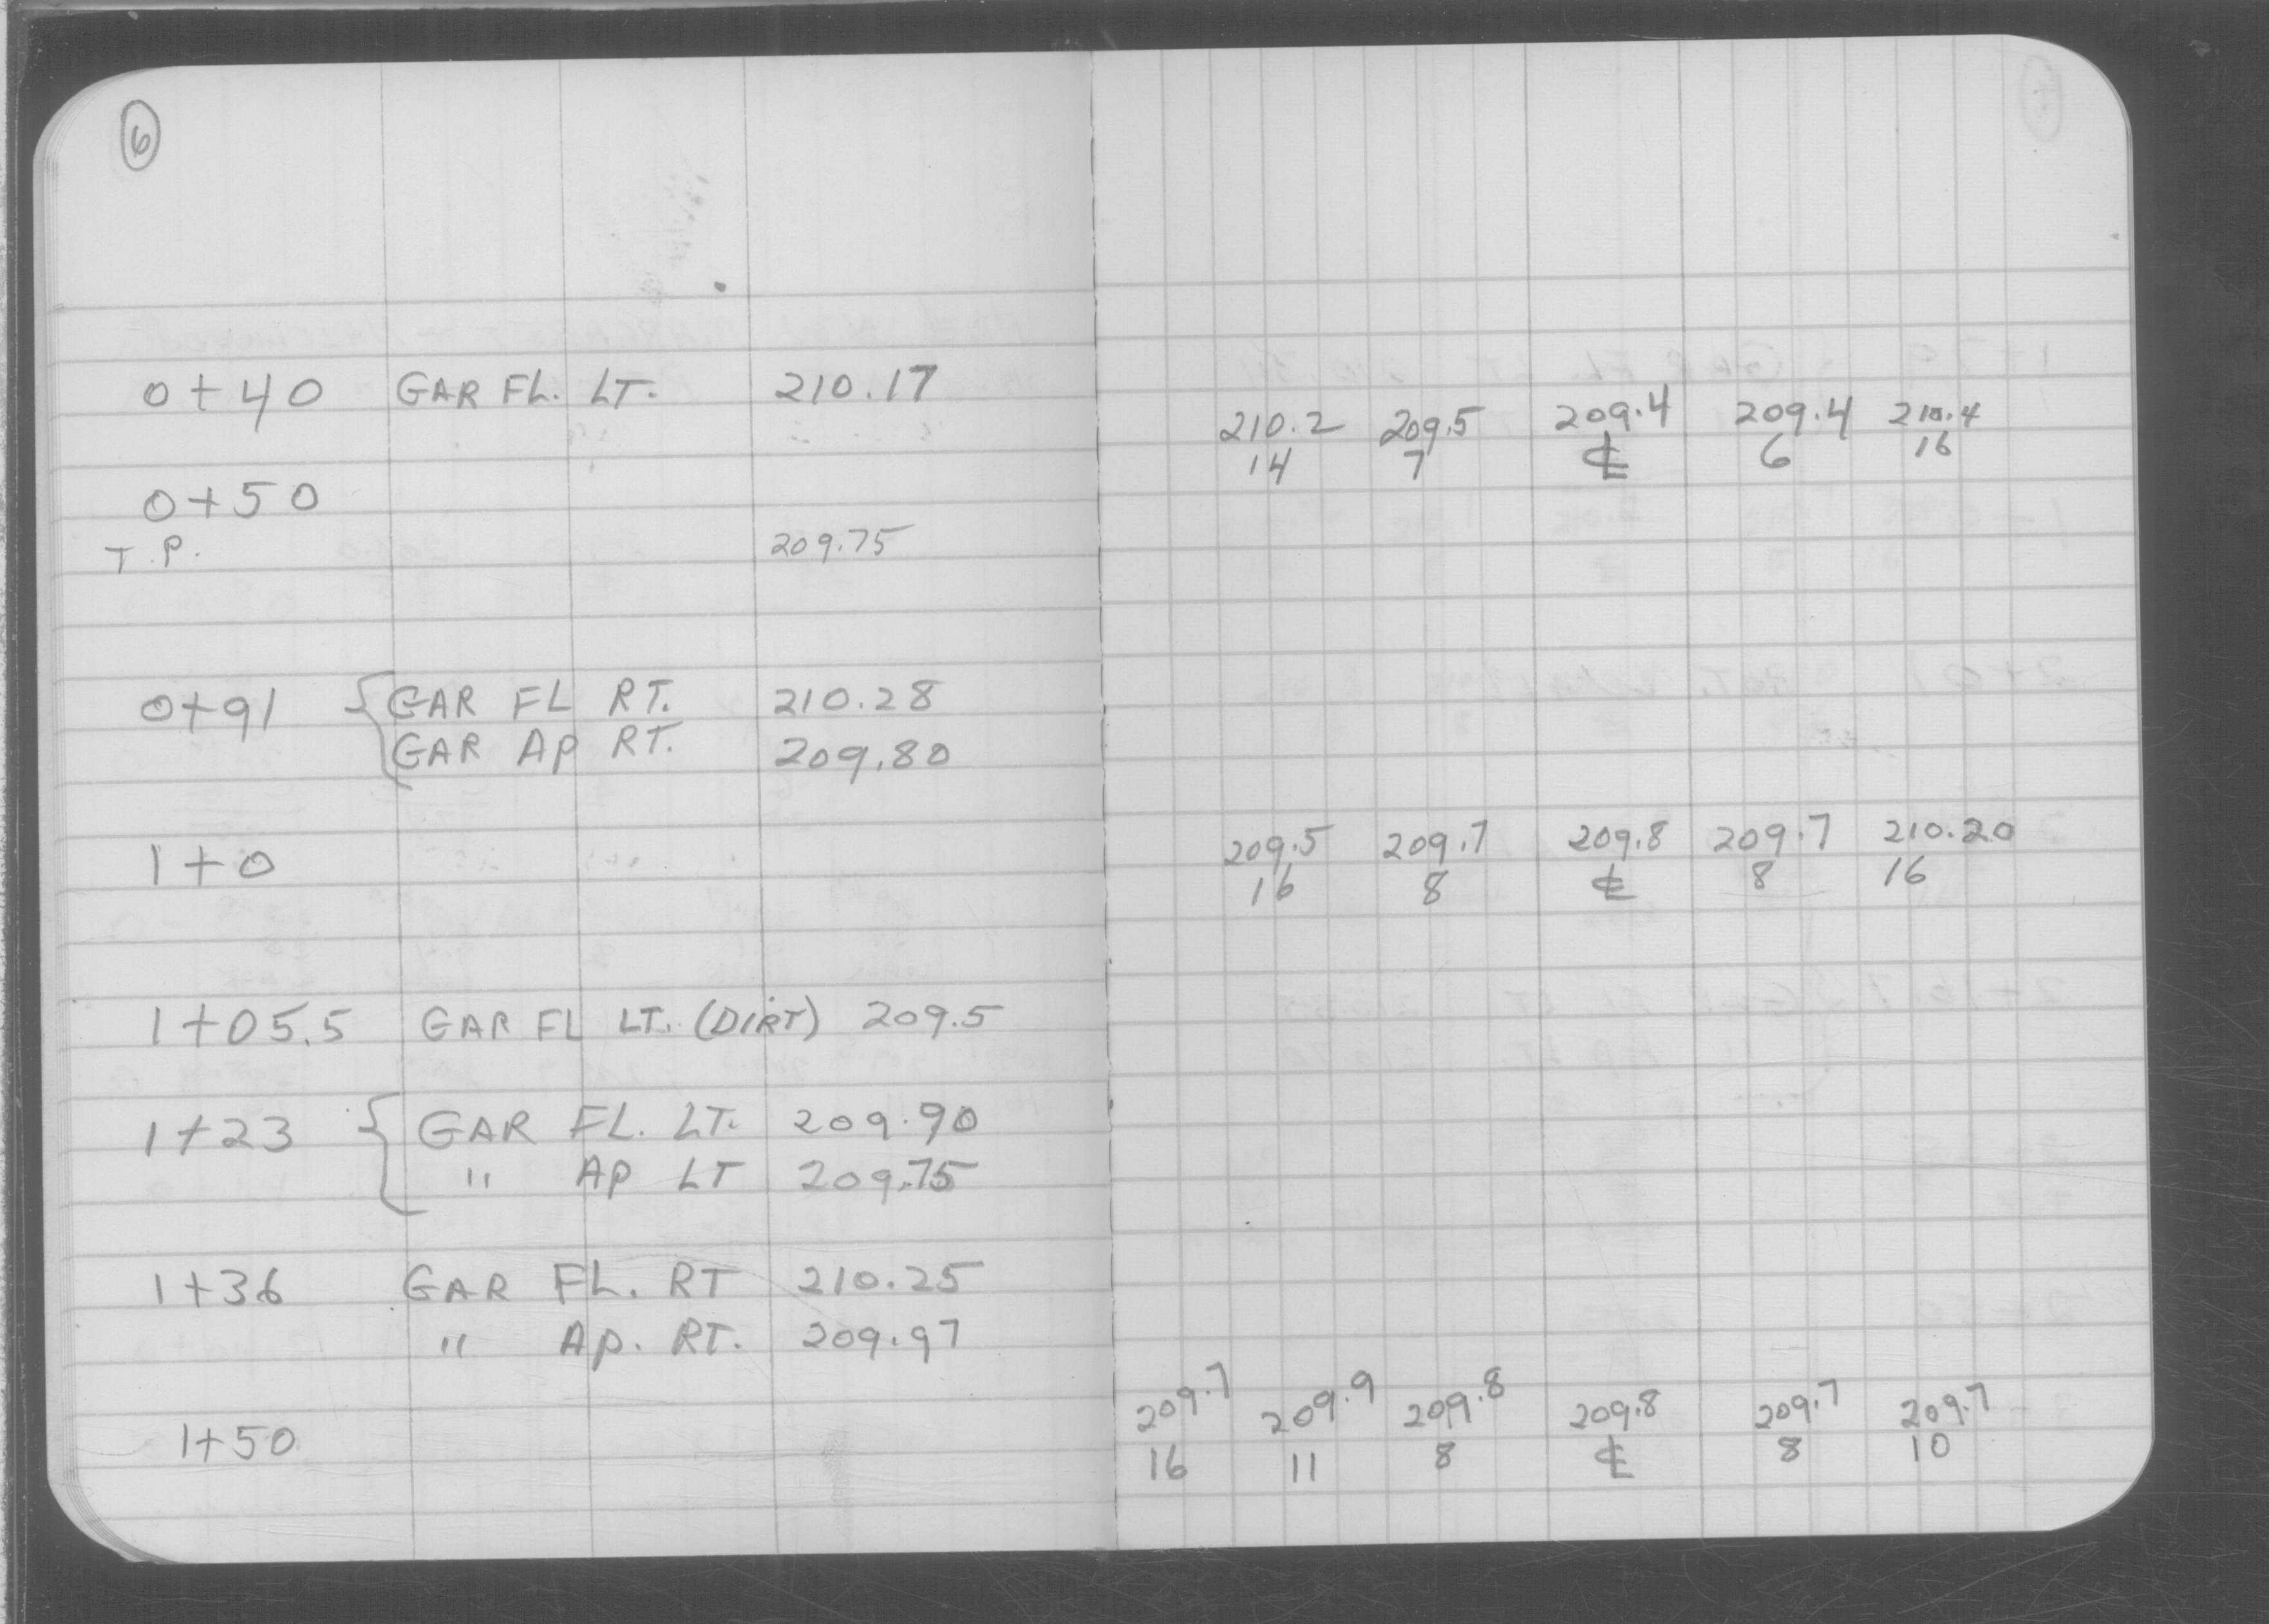 6
0+40 GAR FL. LT. 210.17
210.2 209.5 209.4 209.4 210.4
14 7 ℄ 6 16
0+50
T.P. 209.75
0+91 { GAR FL RT. 210.28
GAR Ap RT. 209.80
209.5 209.7 209.8 209.7 210.20
16 8 ℄ 8 16
1+0
1+05.5 GAR FL LT. (DIRT) 209.5
1+23 { GAR FL. LT. 209.90
" Ap LT 209.75
1+36 GAR FL. RT 210.25
" Ap. RT. 209.97
209.7 209.9 209.8 209.8 209.7 209.7
16 11 8 ℄ 8 10
1+50